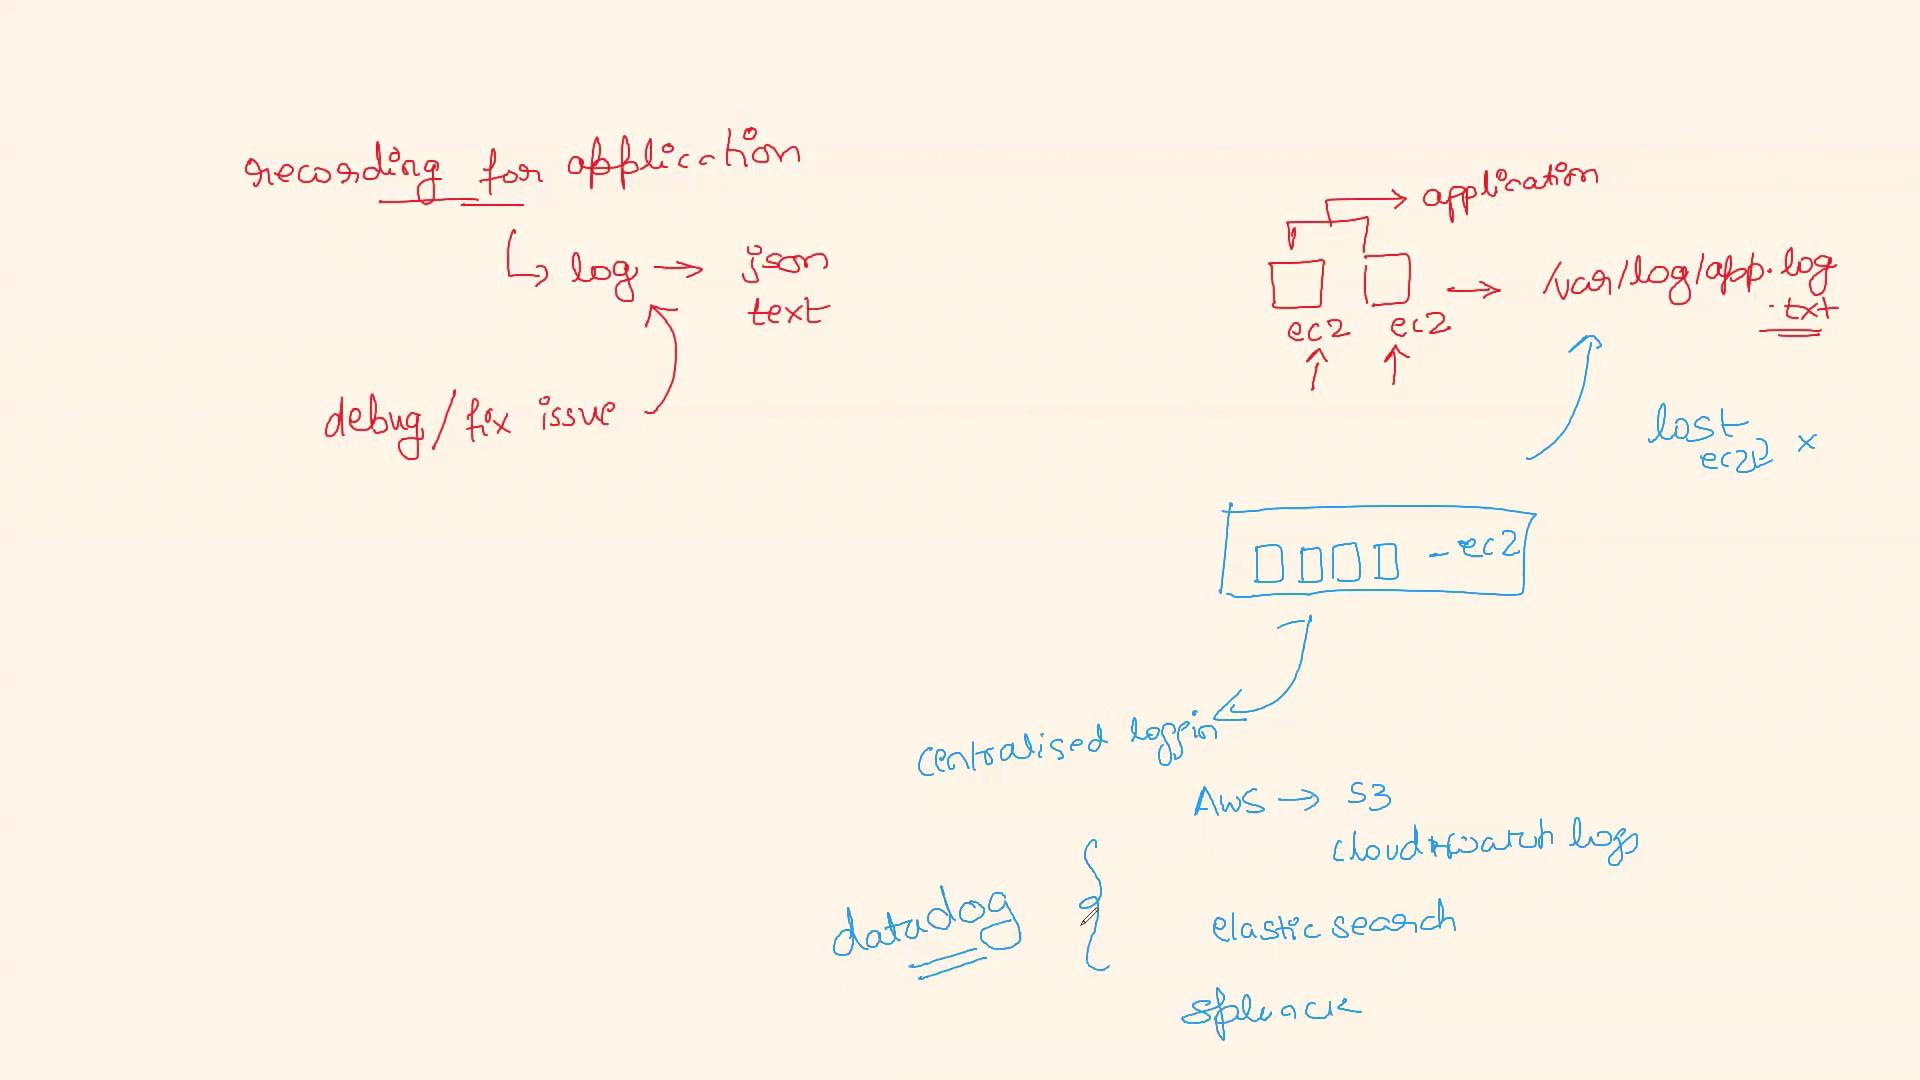 recording for application
log → json
text
debug/fix issue
application
ec2 ec2 → /var/log/app.log
.txt
lost
ec2 x
- ec2
centralised loggin
AWS → S3
cloud watch logs
datadog
elastic search